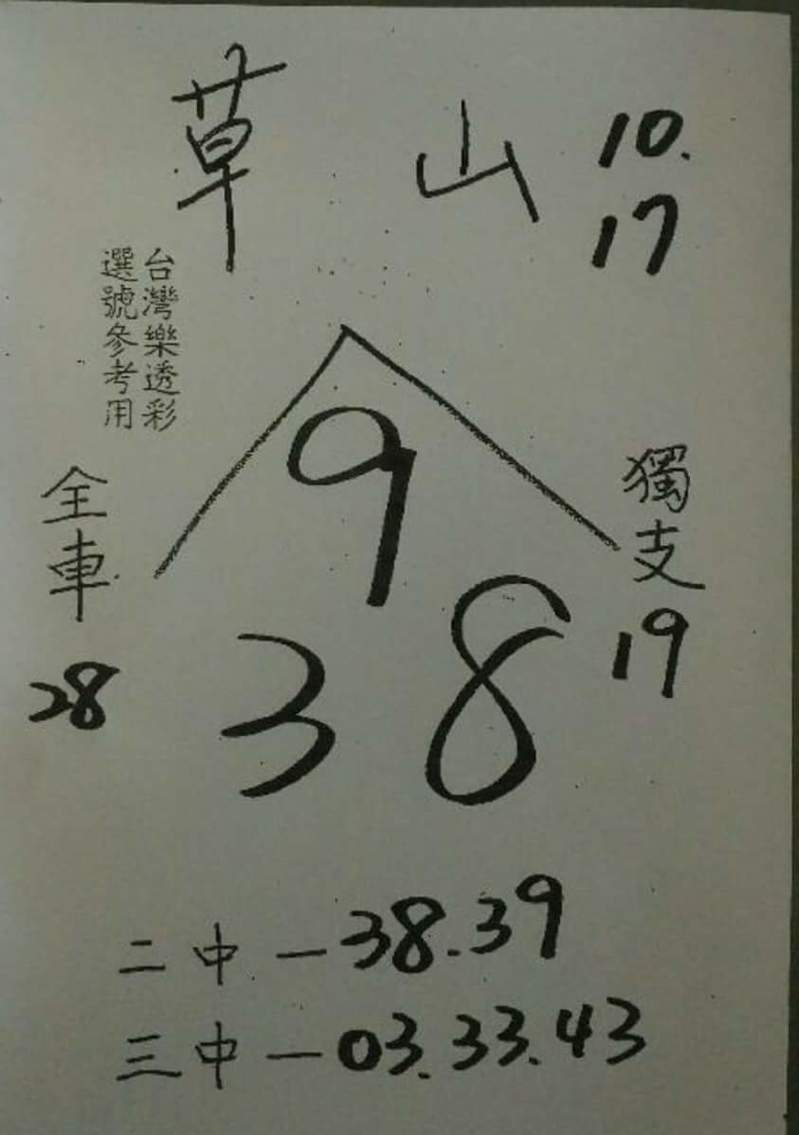 草山
10.
17
台灣樂透彩
選號參考用
全車
28
9
3 8
獨支
19
二中－38.39
三中－03.33.43